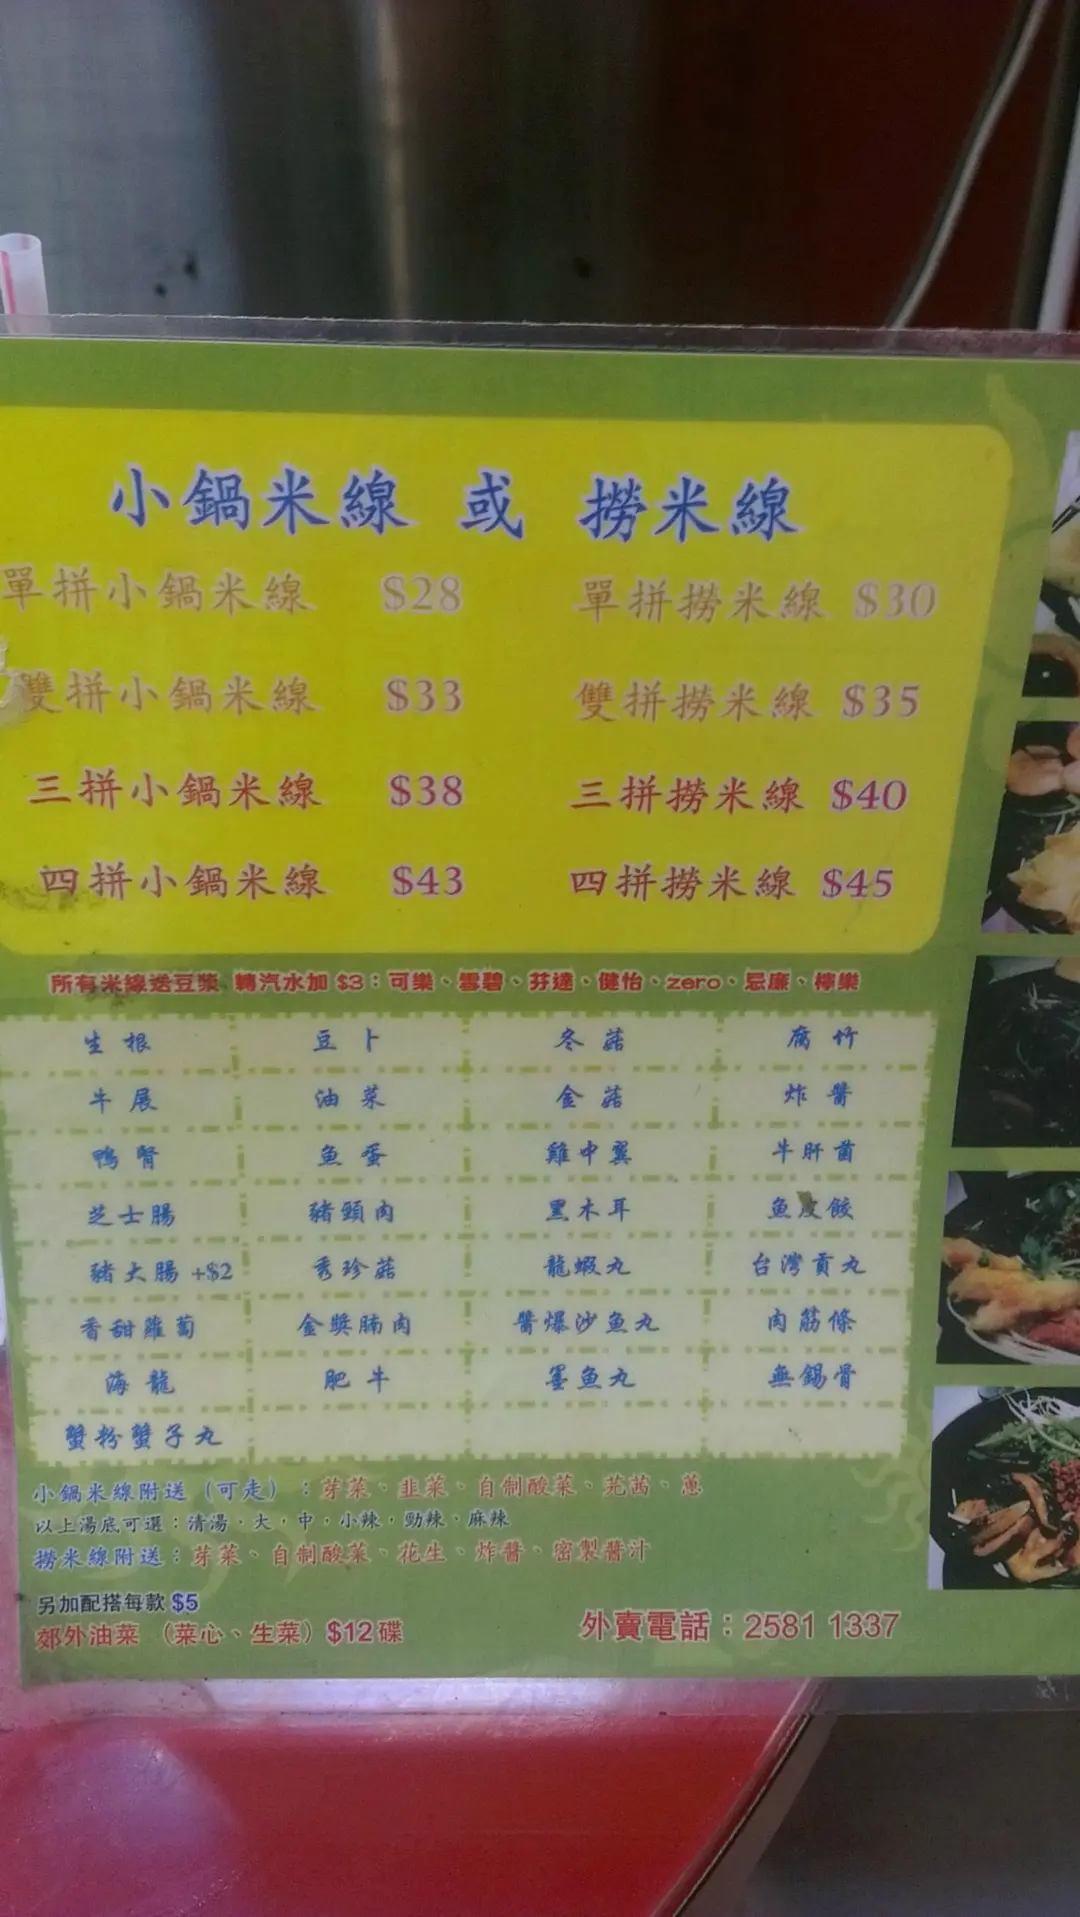 小鍋米線 或 撈米線
單拼小鍋米線 $28 單拼撈米線 $30
雙拼小鍋米線 $33 雙拼撈米線 $35
三拼小鍋米線 $38 三拼撈米線 $40
四拼小鍋米線 $43 四拼撈米線 $45
所有米線送豆漿 轉汽水加 $3：可樂、雪碧、芬達、健怡、zero、忌廉、檸樂
生根 豆卜 冬菇 腐竹
牛展 油菜 金菇 炸醬
鴨腎 魚蛋 雞中翼 牛肝菌
芝士腸 豬頸肉 黑木耳 魚皮餃
豬大腸 +$2 秀珍菇 龍蝦丸 台灣貢丸
香甜蘿蔔 金獎腩肉 醬爆沙魚丸 肉筋條
海龍 肥牛 墨魚丸 無錫骨
蟹粉蟹子丸
小鍋米線附送（可走）：芽菜、韭菜、自制酸菜、芫茜、蔥
以上湯底可選：清湯．大，中，小辣，勁辣．麻辣
撈米線附送：芽菜、自制酸菜、花生、炸醬、密製醬汁
另加配搭每款 $5
郊外油菜 （菜心、生菜）$12碟 外賣電話：2581 1337